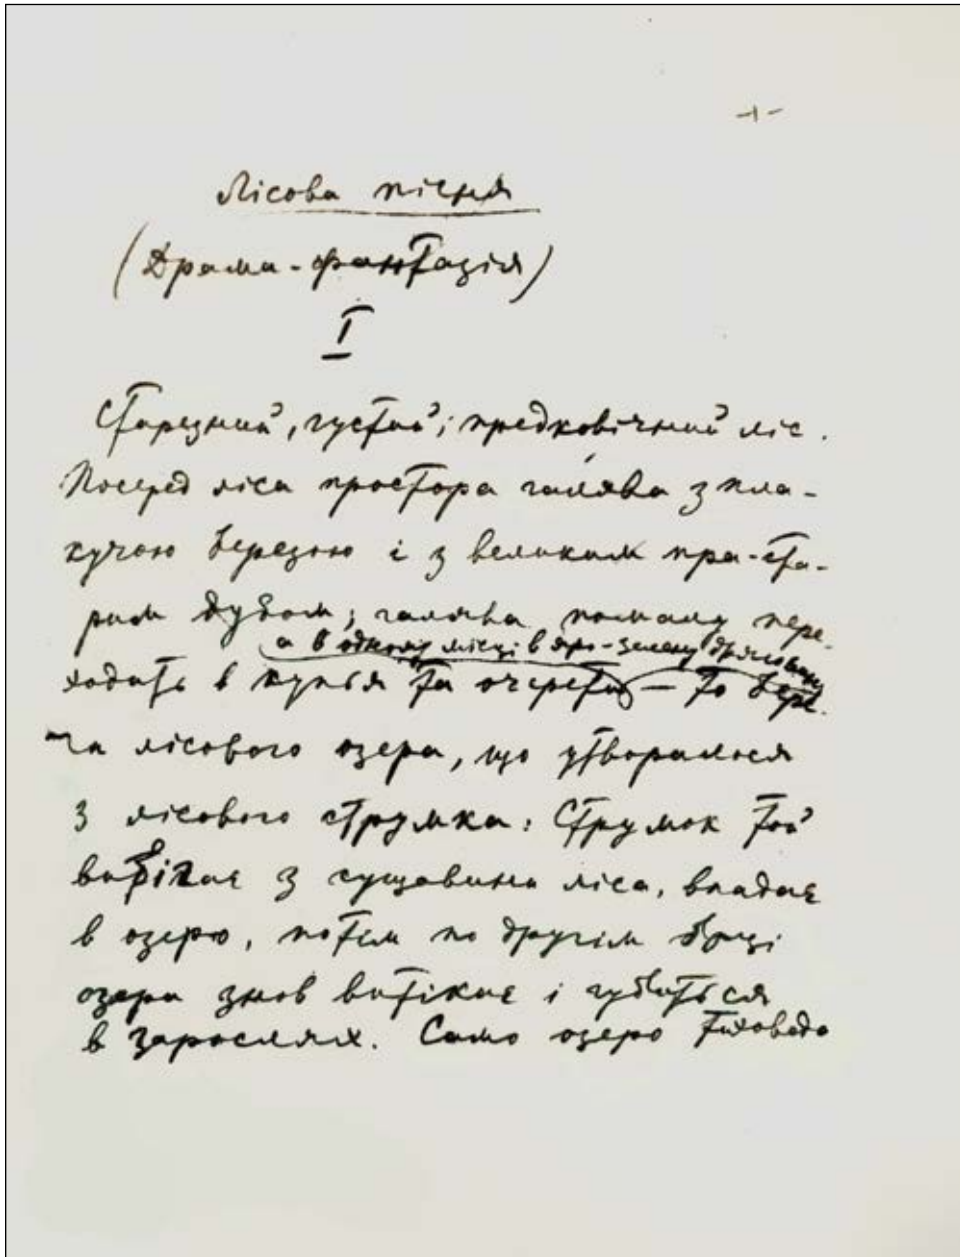 -1-
Лісова пісня
(Драма-фантазія)
I
Старезний, густий, предковічний ліс.
Посеред ліса простора галява з пла-
кучою березою і з великим пра-ста-
рим дубом; галява помалу пере-
а в одному місці в яро-зелену драговину
ходить в купья та очерети — то бере-
га лісового озера, що утворилося
з лісового струмка. Струмок той
витікає з гущавини ліса, впадає
в озеро, потім по другім боці
озера знов витікає і губиться
в зарослях. Само озеро тиховода